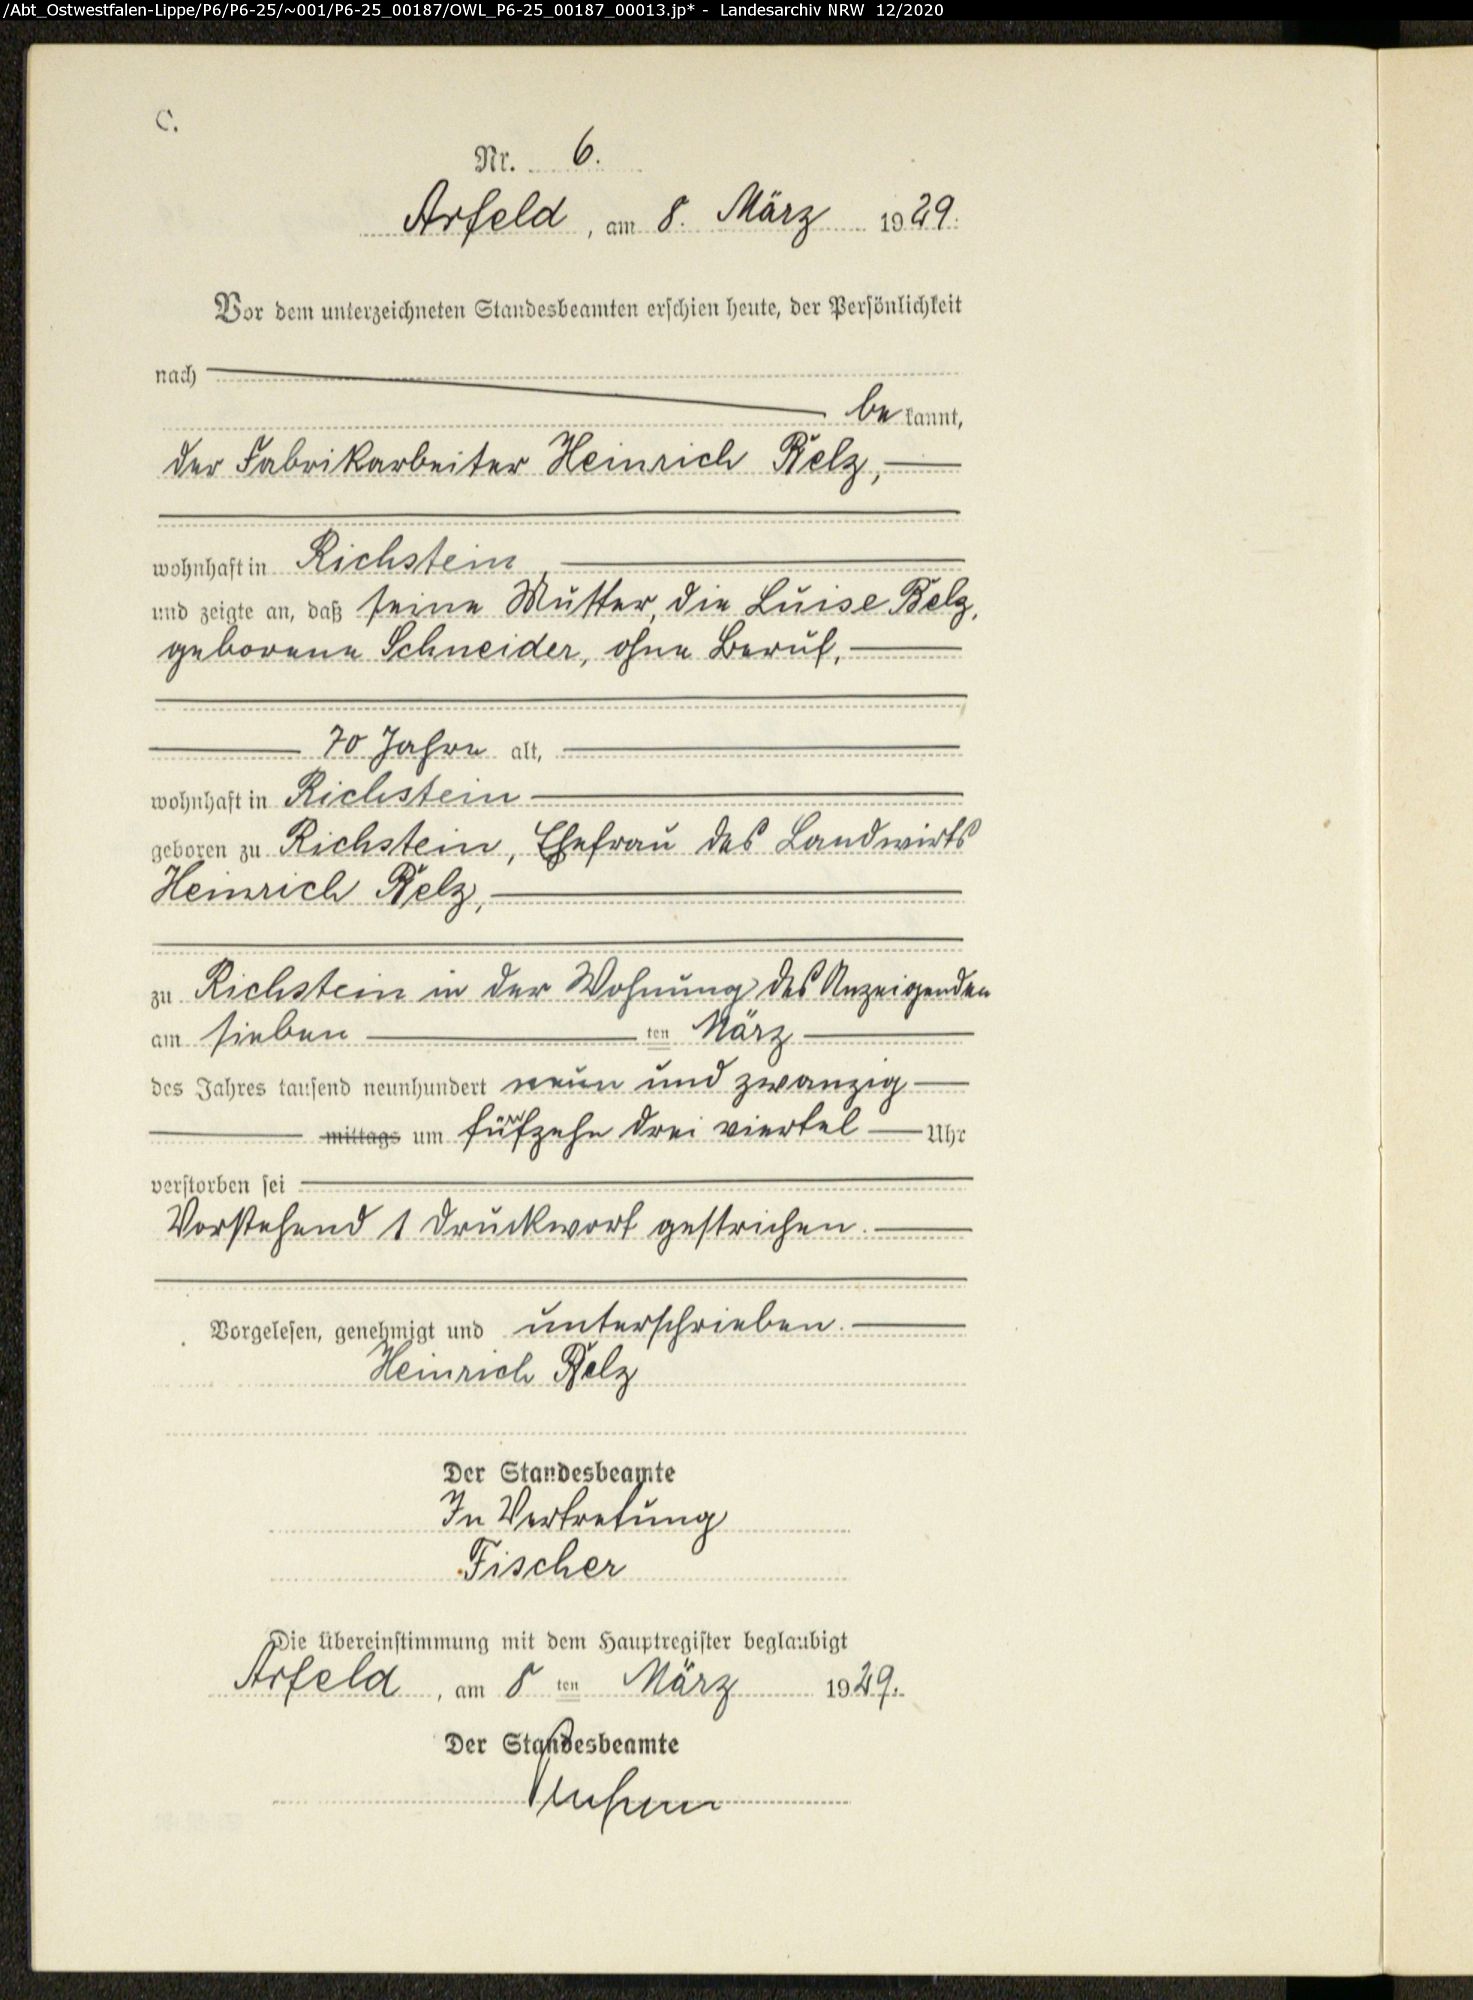 /Abt_Ostwestfalen-Lippe/P6/P6-25/~001/P6-25_00187/OWL_P6-25_00187_00013.jp* - Landesarchiv NRW 12/2020
C.
Nr. 6.
Arfeld, am 8. März 1929.
Vor dem unterzeichneten Standesbeamten erschien heute, der Persönlichkeit
nach
be kannt,
der Fabrikarbeiter Heinrich Belz,
wohnhaft in Richstein,
und zeigte an, daß seine Mutter, die Luise Belz,
geborene Schneider, ohne Beruf,
70 Jahre alt,
wohnhaft in Richstein
geboren zu Richstein, Ehefrau des Landwirts
Heinrich Belz,
zu Richstein in der Wohnung des Anzeigenden
am sieben ten März
des Jahres tausend neunhundert neun und zwanzig
mittags um fünfzehn drei viertel Uhr
verstorben sei
Vorstehend 1 Druckwort gestrichen.
Vorgelesen, genehmigt und unterschrieben.
Heinrich Belz
Der Standesbeamte
In Vertretung
Fischer
Die Übereinstimmung mit dem Hauptregister beglaubigt
Arfeld, am 8 ten März 1929.
Der Standesbeamte